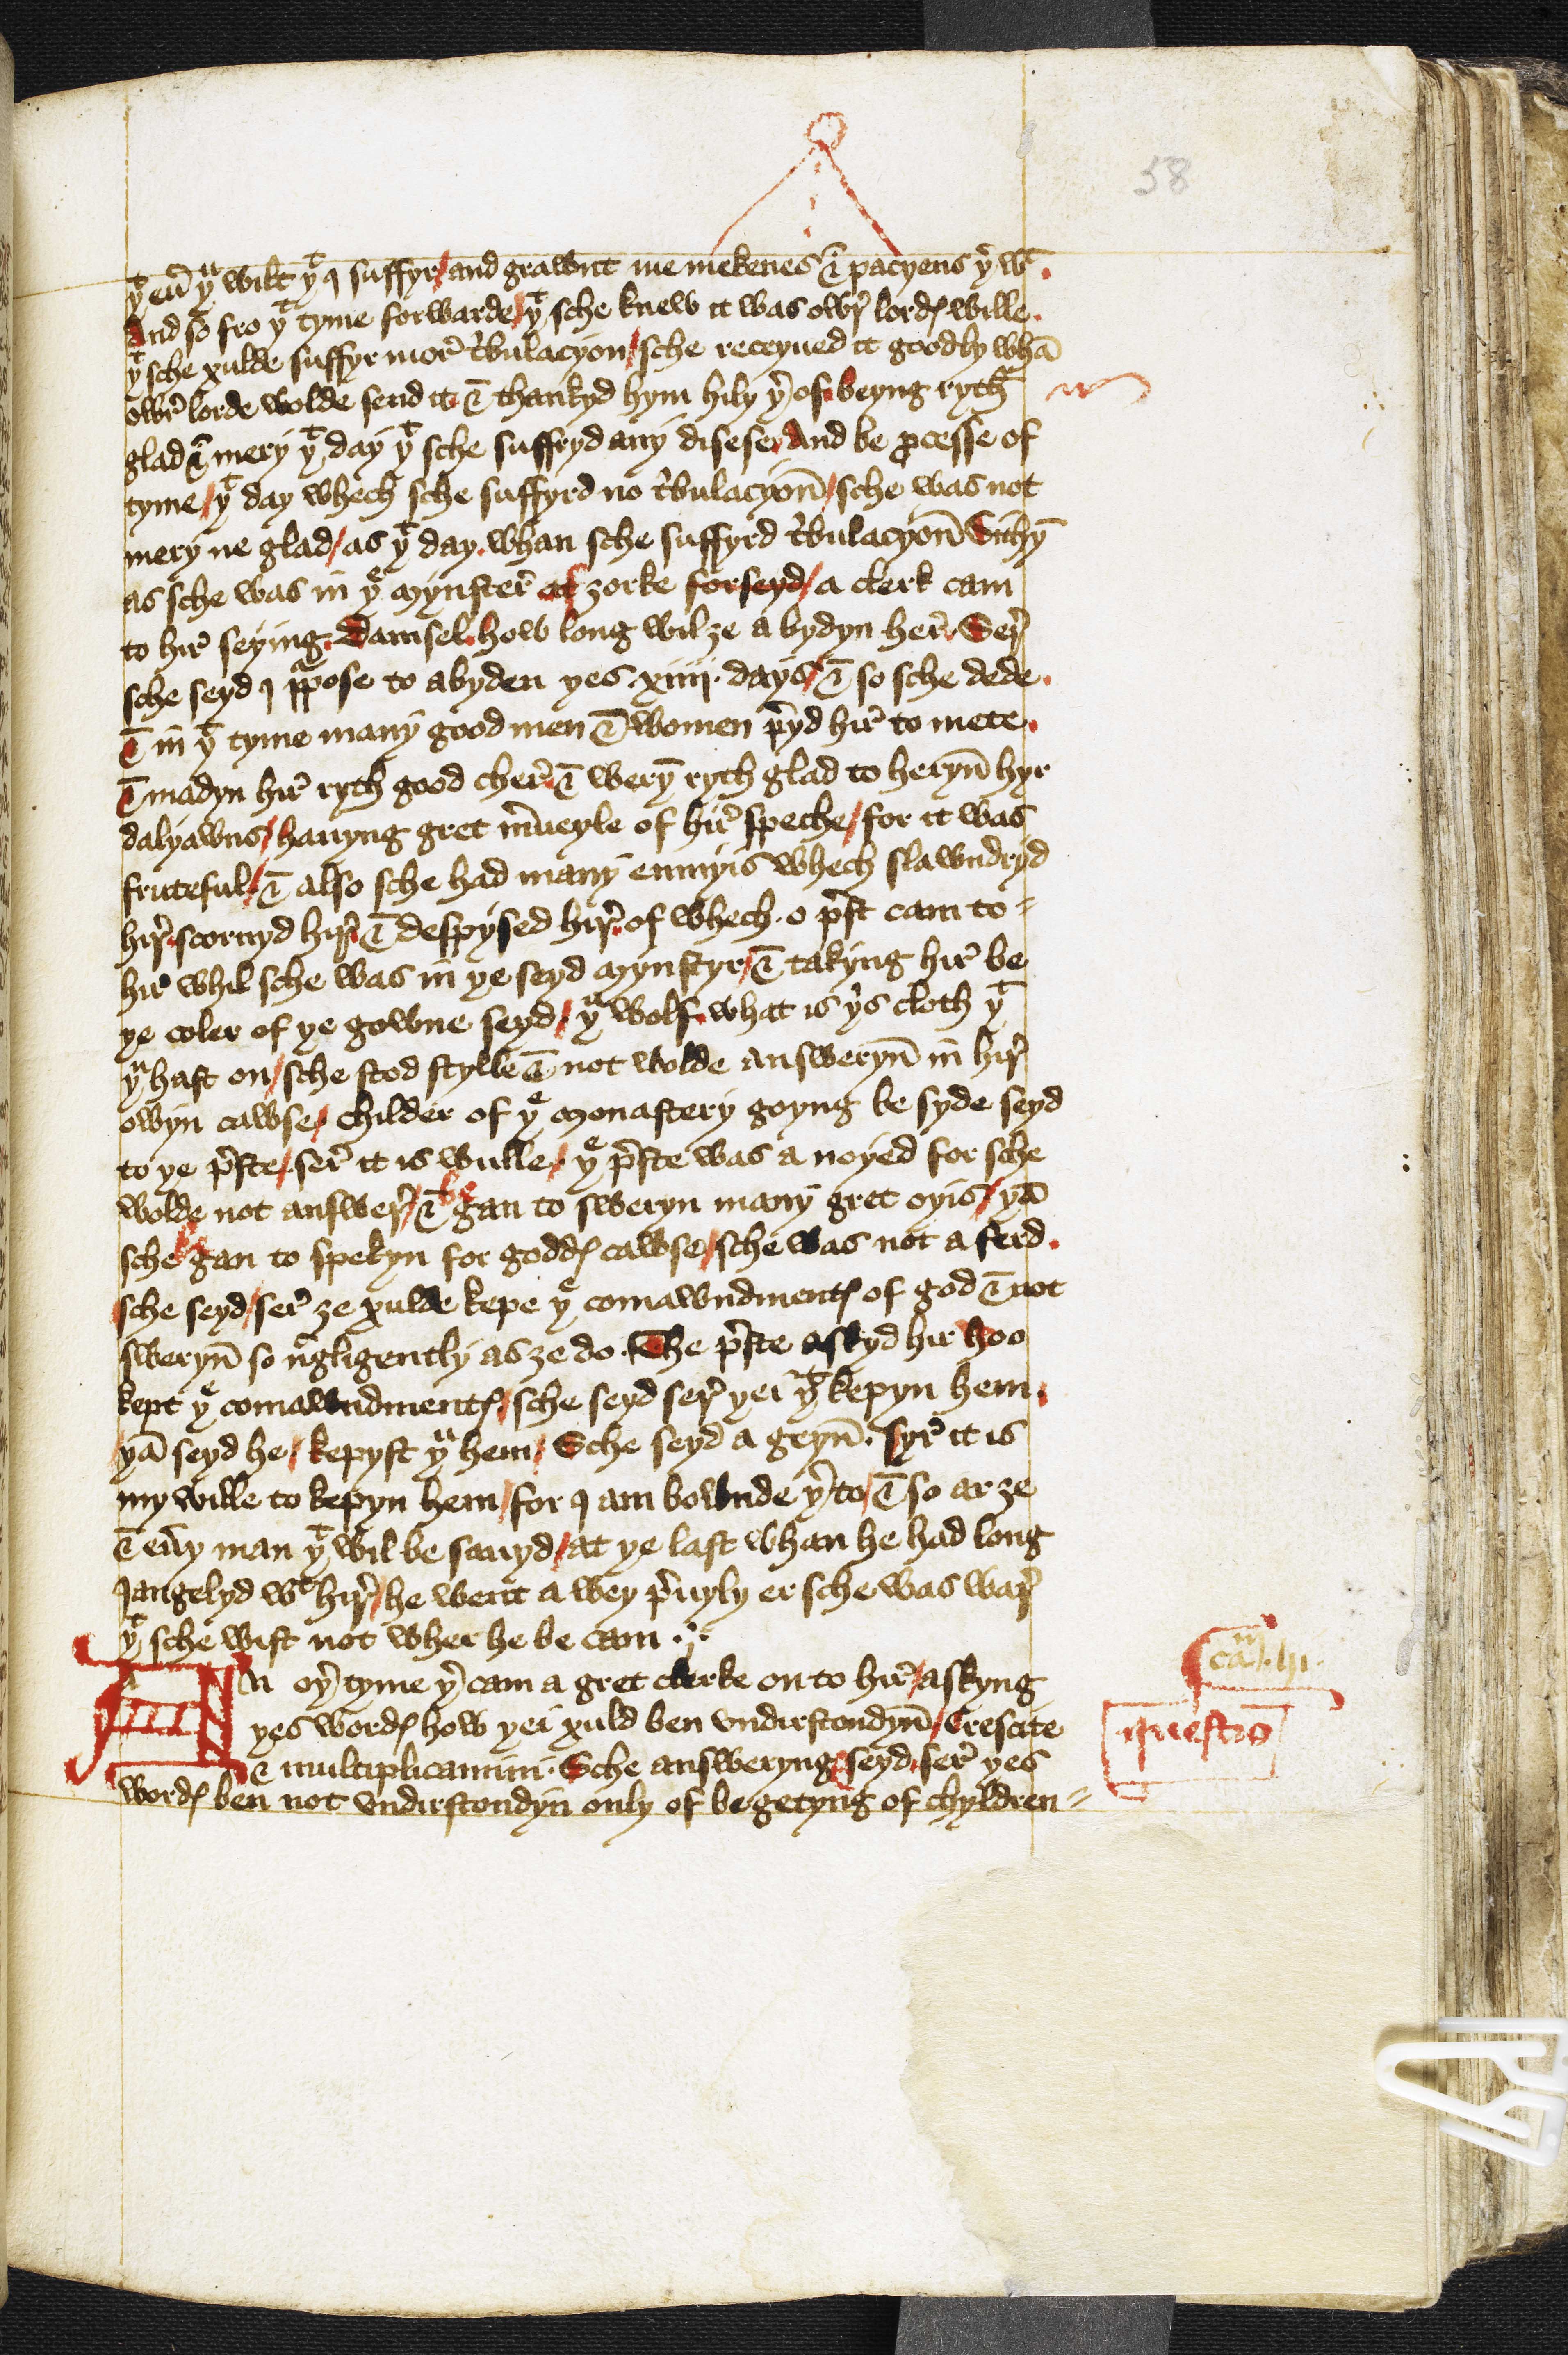 58
yͭ euͬ yͧ wilt yͭ I suffyr / and grawnt me mekenes & pacyens yͬ wͭ.
And so fro yͭ tyme forwarde / yͭ sche knew it was owyr lordys wille.
yͭ sche xulde suffyr mor tͬbulacyon / sche receyued it goodly whā
owr lorde wolde send it & thankyd hym hily yͬof. beyng ryth
glad & mery yͭ day yͭ sche suffryd any disese. And be ꝓcesse of
tyme / yͭ day whech sche suffyrd no tͬbulacyon̄ / sche was not
mery ne glad / as yͭ day. whan sche suffyrd tͬbulacyon̄ Sithyn̄
as sche was in yͤ Mynster at ȝorke forseyd / a clerk cam
to hir seying. Damsel. how long wil ȝe a bydyn her. Ser
sche seyd I p̲pose to abyden yes .xiiij. days / & so sche dede.
& in yͭ tyme many good men & women pͬyd hir to mete.
& madyn hir ryth good cher. & weryn̄ ryth glad to heryn̄ hyr
dalyawns / hauyng gret mͬueyle of hir speche / for it was
fruteful. / & also sche had many enmyis whech slawndryd
hir. scornyd hir. & despysed hir. of whech. o pͬst cam to=
hir whil sche was in ye seyd Mynstyr / & takyng hir be
ye coler of ye gowne seyd / yͧ wolf. what is yͥs cloth yͭ
yͧ hast on / sche stod stylle & not wolde answeryn̄ in hir
owyn cawse / childer of yͤ Monastery goyng be syde seyd
to ye pͬste / ser it is wulle / yͤ pͬste was a noyed for sche
wolde not answer / & be gan to sweryn many gret oyis / yā
sche be gan to spekyn for goddys cawse / sche was not a ferd.
sche seyd / ser ȝe xulde kepe yͤ comawndmentys of god & not
sweryn̄ so nͤgligently as ȝe do. The pͬste askyd hir hoo
kept yͤ comawndmentys / sche seyd ser yei yͭ kepyn hem.
yā seyd he / kepyst yͧ hem / Sche seyd a geyn̄. syr it is
my wille to kepyn hem / for I am bownde yͬto / & so ar ȝe
& euͬy man yͭ wil be sauyd / at ye last whan he had long
Iangelyd wͭ hir / he went a wey pͬuyly er sche was war
yͭ sche wist not wher he be cam .
An oyͬ tyme yͬ cam a gret clerke on to hir / askyng
yes wordys how yei xuld ben vndirstondyn̄ / Crescite
& multiplicamini. Sche answeryng seyd. ser yes
wordys ben not vndirstondyn only of begetyng of chyldren=
caͫ .li.
questio